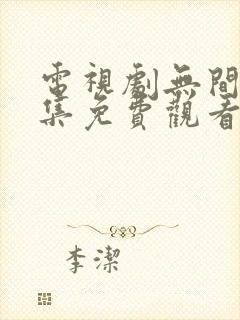 電視劇無間
集免費觀看
李潔